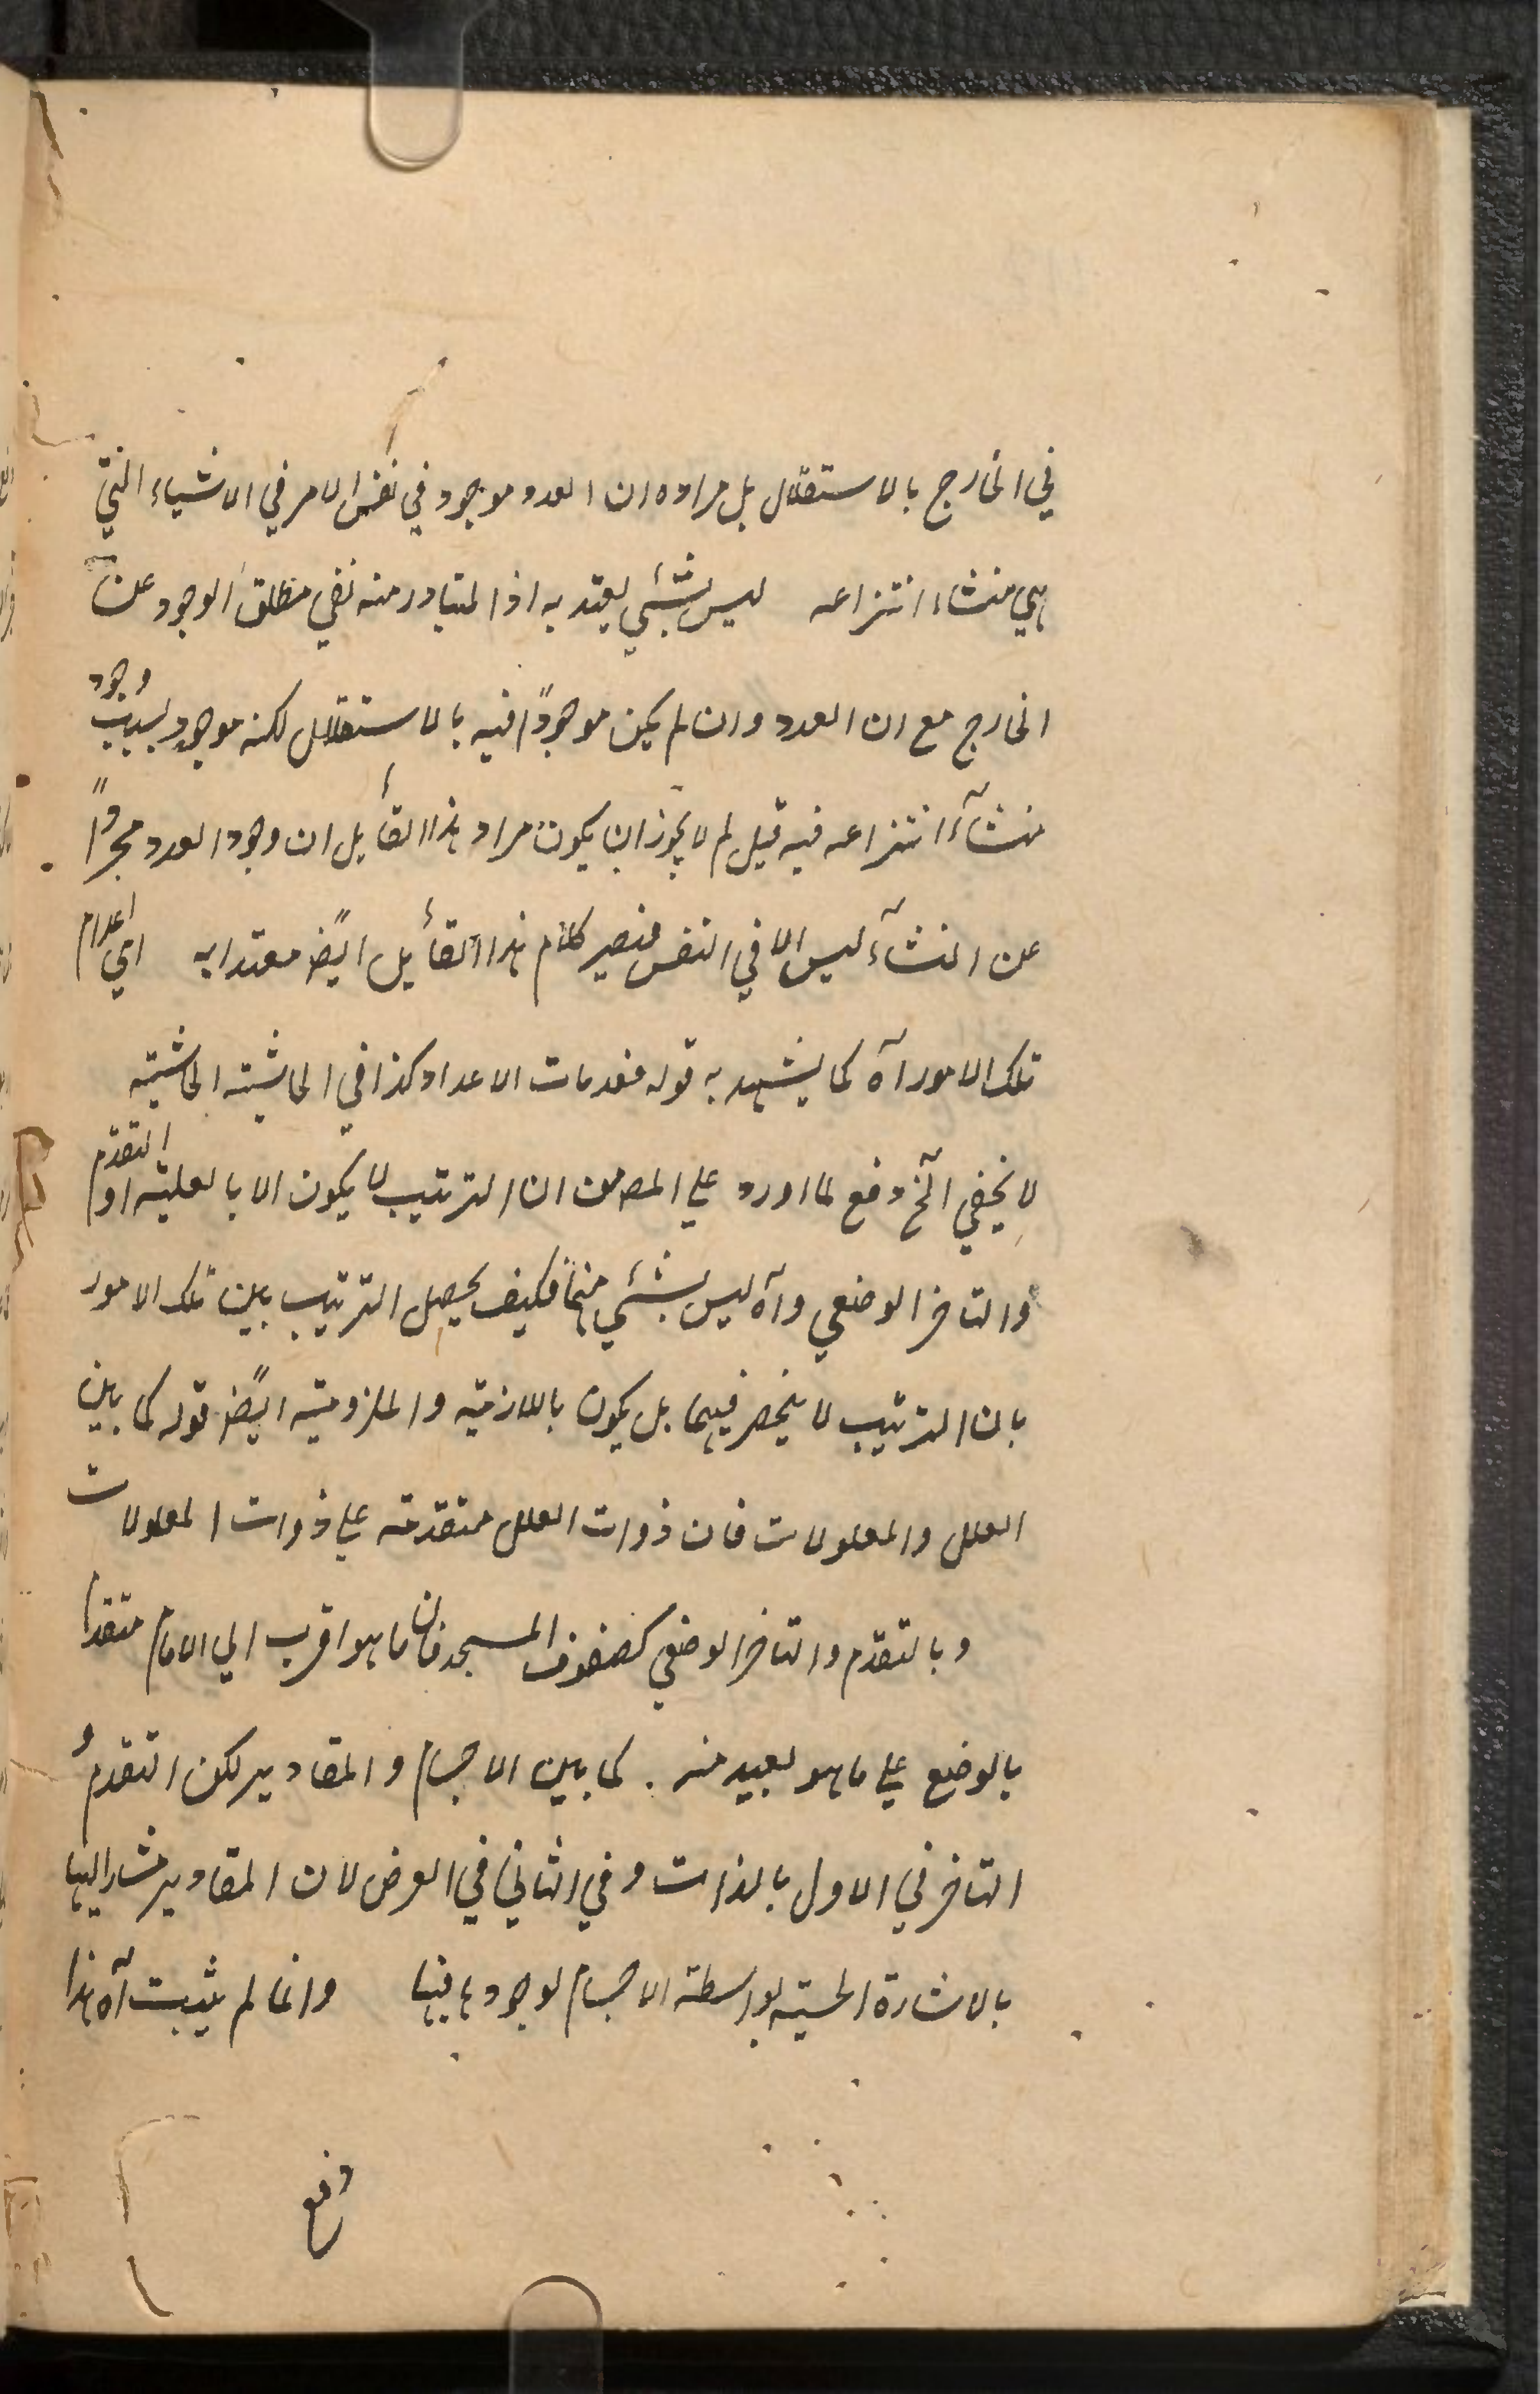 في الخارج بالاستقلال بل مراده ان العدد موجود في نفس الامر في الاشياء التي
هي منشاء انتزاعه ليس بشئي يعتد به اذ المتبادر منه نفي مطلق الوجود عن
الخارج مع ان العدد وان لم يكن موجودًا فيه بالاستقلال لكنه موجود بسبب وجود
منشآء انتزاعه فيه قيل لم لا يجوز ان يكون مراد هذا القائل ان وجود العدد مجردًا
عن المنشآء ليس الا في النفس فيصير كلام هذا القائل ايضً معتدا به اي اعدام
تلك الامور آه كما يشهد به قوله فعدمات الاعداد كذا في الحاشية الحاشية
لا يخفي آلخ دفع لما اورد علي المص من ان الترتيب لا يكون الا بالعلية او التقدم
والتاخر الوضعي وآه ليس بشئي منها فكيف يحصل الترتيب بين تلك الامور
بان الترتيب لا ينحصر فيهما بل يكون باللازمية والملزومية ايضً قوله كما بين
العلل والمعلولات فان ذوات العلل متقدمة علي ذوات المعلولات
وبالتقدم والتاخر الوضعي كصفوف المسجد فان ما هو اقرب الي الامام متقدم
بالوضع علي ما هو بعيد منه . كما بين الاجسام والمقادير لكن التقدم و
التاخر في الاول بالذات وفي الثاني في العرض لان المقادير مشار اليها
بالاشارة الحسية بواسطة الاجسام لوجودها فيها وانما لم يثبت آه هذا
دفع